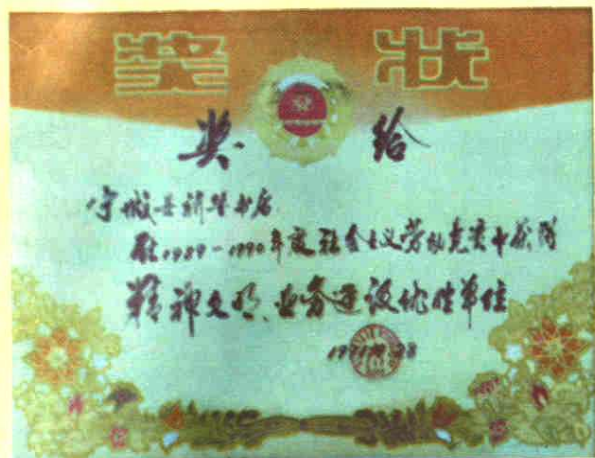 奖状
奖给
宁城县新华书店
在1989-1990年度社会主义劳动竞赛中获得
精神文明、业务建设优胜单位